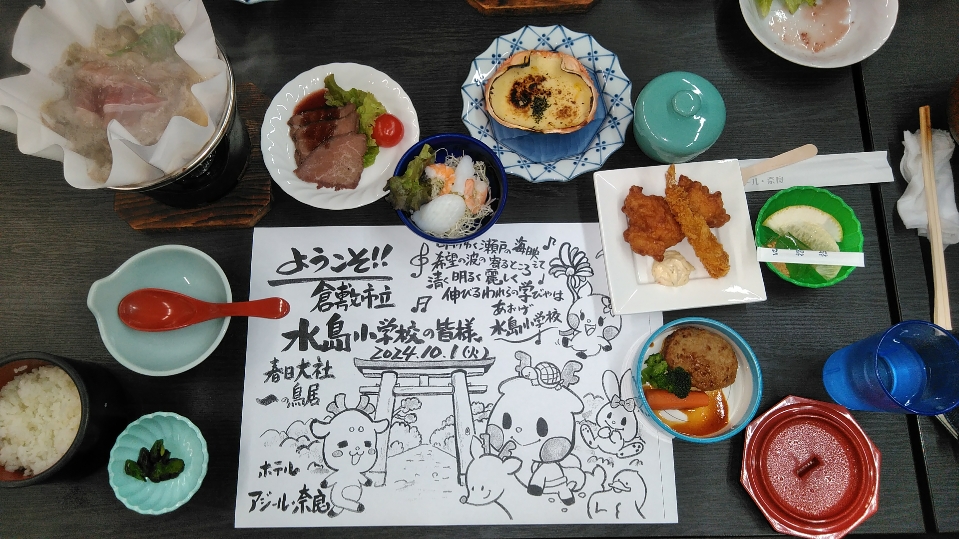 ようこそ!!
倉敷市立
水島小学校の皆様
2024.10.1(火)
春日大社
一の鳥居
ホテル
アジール・奈良
瀬戸の海映え
希望の波の寄るところ
清く明るく麗しく
伸びるわれらの学びやは
あおげ
水島小学校
ール・奈良